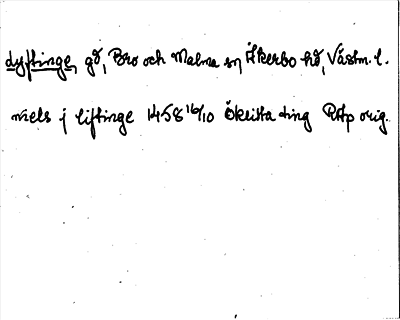 Lyftinge, gd, Bro och Malma sn, Åkerbo hd, Västm. l.
niels j liftinge 1458 16/10 Ökilsta ting RAp orig.